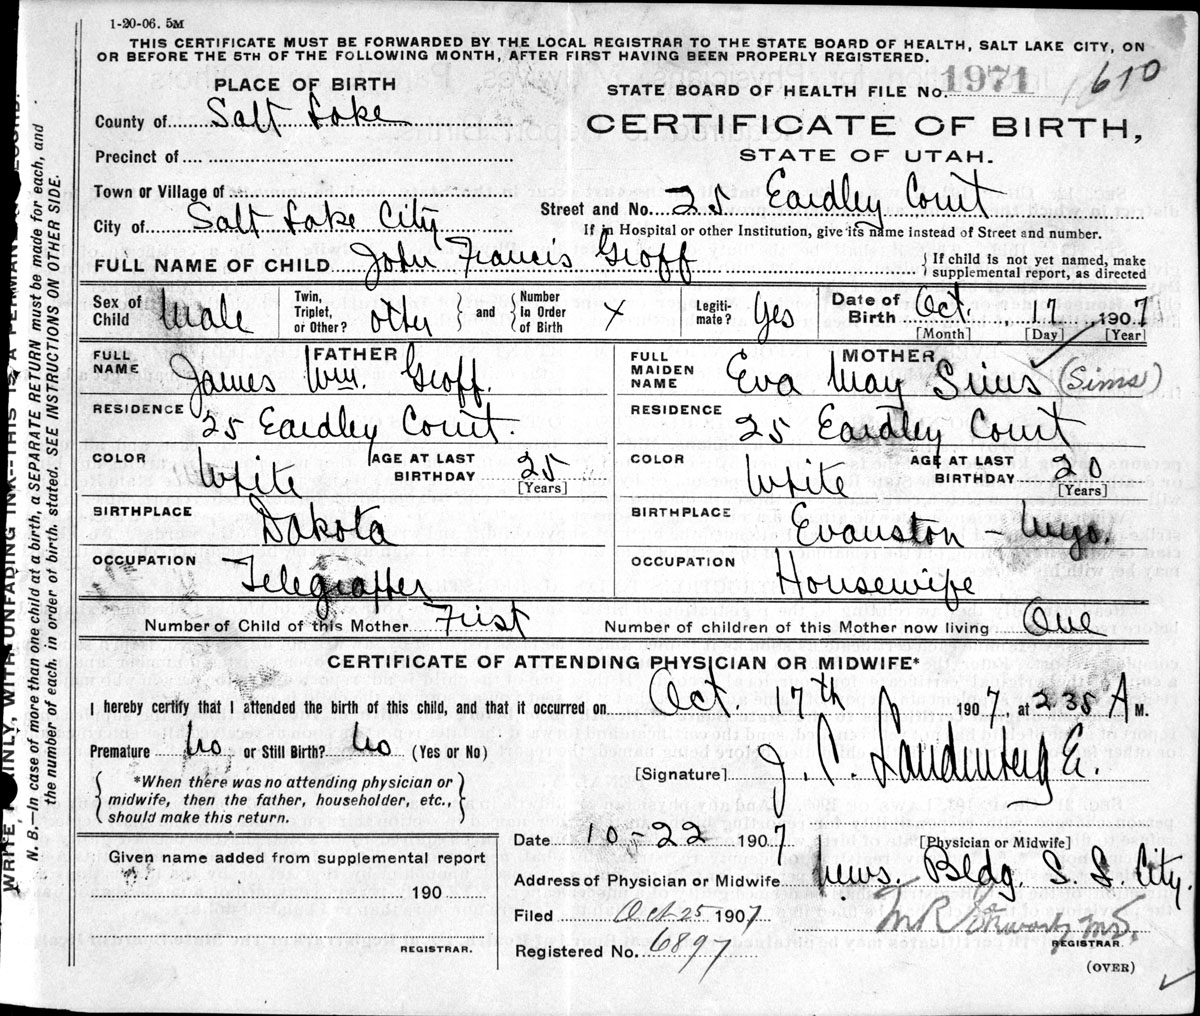 1-20-06. 5M
THIS CERTIFICATE MUST BE FORWARDED BY THE LOCAL REGISTRAR TO THE STATE BOARD OF HEALTH, SALT LAKE CITY, ON
OR BEFORE THE 5TH OF THE FOLLOWING MONTH, AFTER FIRST HAVING BEEN PROPERLY REGISTERED.
PLACE OF BIRTH
STATE BOARD OF HEALTH FILE No. 1971 610
County of Salt Lake
CERTIFICATE OF BIRTH,
Precinct of
STATE OF UTAH.
Town or Village of
City of Salt Lake City
Street and No. 25 Eardley Court
If in Hospital or other Institution, give its name instead of Street and number.
FULL NAME OF CHILD John Francis Groff
If child is not yet named, make
supplemental report, as directed
Sex of Child Male Twin, Triplet, or Other? other and Number in Order of Birth x Legiti- mate? Yes Date of Birth Oct. 17, 1907
[Month] [Day] [Year]
FULL NAME FATHER James Wm. Groff.
FULL MAIDEN NAME MOTHER Eva May Sims (Sims)
RESIDENCE 25 Eardley Court.
RESIDENCE 25 Eardley Court
COLOR White AGE AT LAST BIRTHDAY 25 [Years]
COLOR White AGE AT LAST BIRTHDAY 20 [Years]
BIRTHPLACE Dakota
BIRTHPLACE Evanston Wyo.
OCCUPATION Telegrapher
OCCUPATION Housewife
Number of Child of this Mother First
Number of children of this Mother now living One
CERTIFICATE OF ATTENDING PHYSICIAN OR MIDWIFE*
I hereby certify that I attended the birth of this child, and that it occurred on Oct. 17th 1907, at 2 35 A M.
Premature No or Still Birth? No (Yes or No)
*When there was no attending physician or
midwife, then the father, householder, etc.,
should make this return.
[Signature] J. C. Landenberg E.
[Physician or Midwife]
Date 10-22 1907
Given name added from supplemental report
190
REGISTRAR.
Address of Physician or Midwife News. Bldg. S. L. City.
Filed Oct 25 1907
REGISTRAR.
Registered No. 6897
(OVER)
WRITE PLAINLY, WITH UNFADING INK--THIS IS A PERMANENT RECORD.
N. B.—In case of more than one child at a birth, a SEPARATE RETURN must be made for each, and
the number of each, in order of birth, stated. SEE INSTRUCTIONS ON OTHER SIDE.